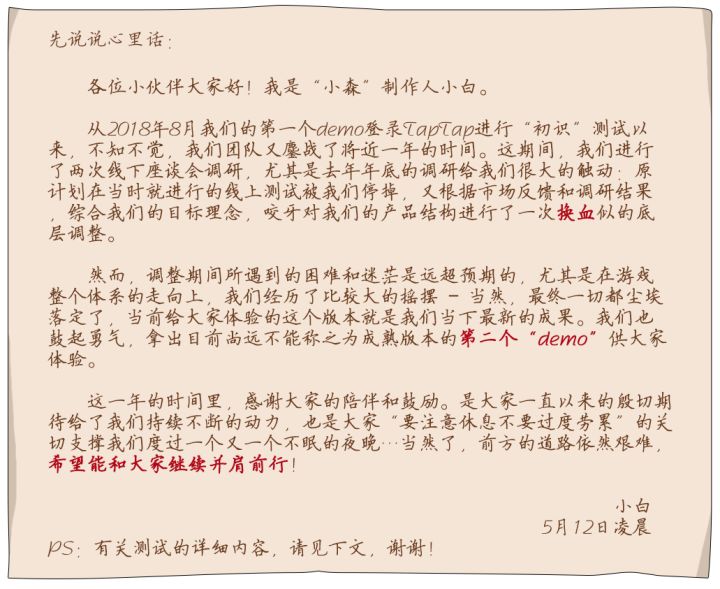 先说说心里话：
各位小伙伴大家好！我是“小森”制作人小白。
从2018年8月我们的第一个demo登录TapTap进行“初识”测试以
来，不知不觉，我们团队又鏖战了将近一年的时间。这期间，我们进行
了两次线下座谈会调研，尤其是去年年底的调研给我们很大的触动：原
计划在当时就进行的线上测试被我们停掉，又根据市场反馈和调研结果
，综合我们的目标理念，咬牙对我们的产品结构进行了一次换血似的底
层调整。
然而，调整期间所遇到的困难和迷茫是远超预期的，尤其是在游戏
整个体系的走向上，我们经历了比较大的摇摆 - 当然，最终一切都尘埃
落定了，当前给大家体验的这个版本就是我们当下最新的成果。我们也
鼓起勇气，拿出目前尚远不能称之为成熟版本的第二个“demo”供大家
体验。
这一年的时间里，感谢大家的陪伴和鼓励。是大家一直以来的殷切期
待给了我们持续不断的动力，也是大家“要注意休息不要过度劳累”的关
切支撑我们度过一个又一个不眠的夜晚…当然了，前方的道路依然艰难，
希望能和大家继续并肩前行！
小白
5月12日凌晨
PS：有关测试的详细内容，请见下文，谢谢！